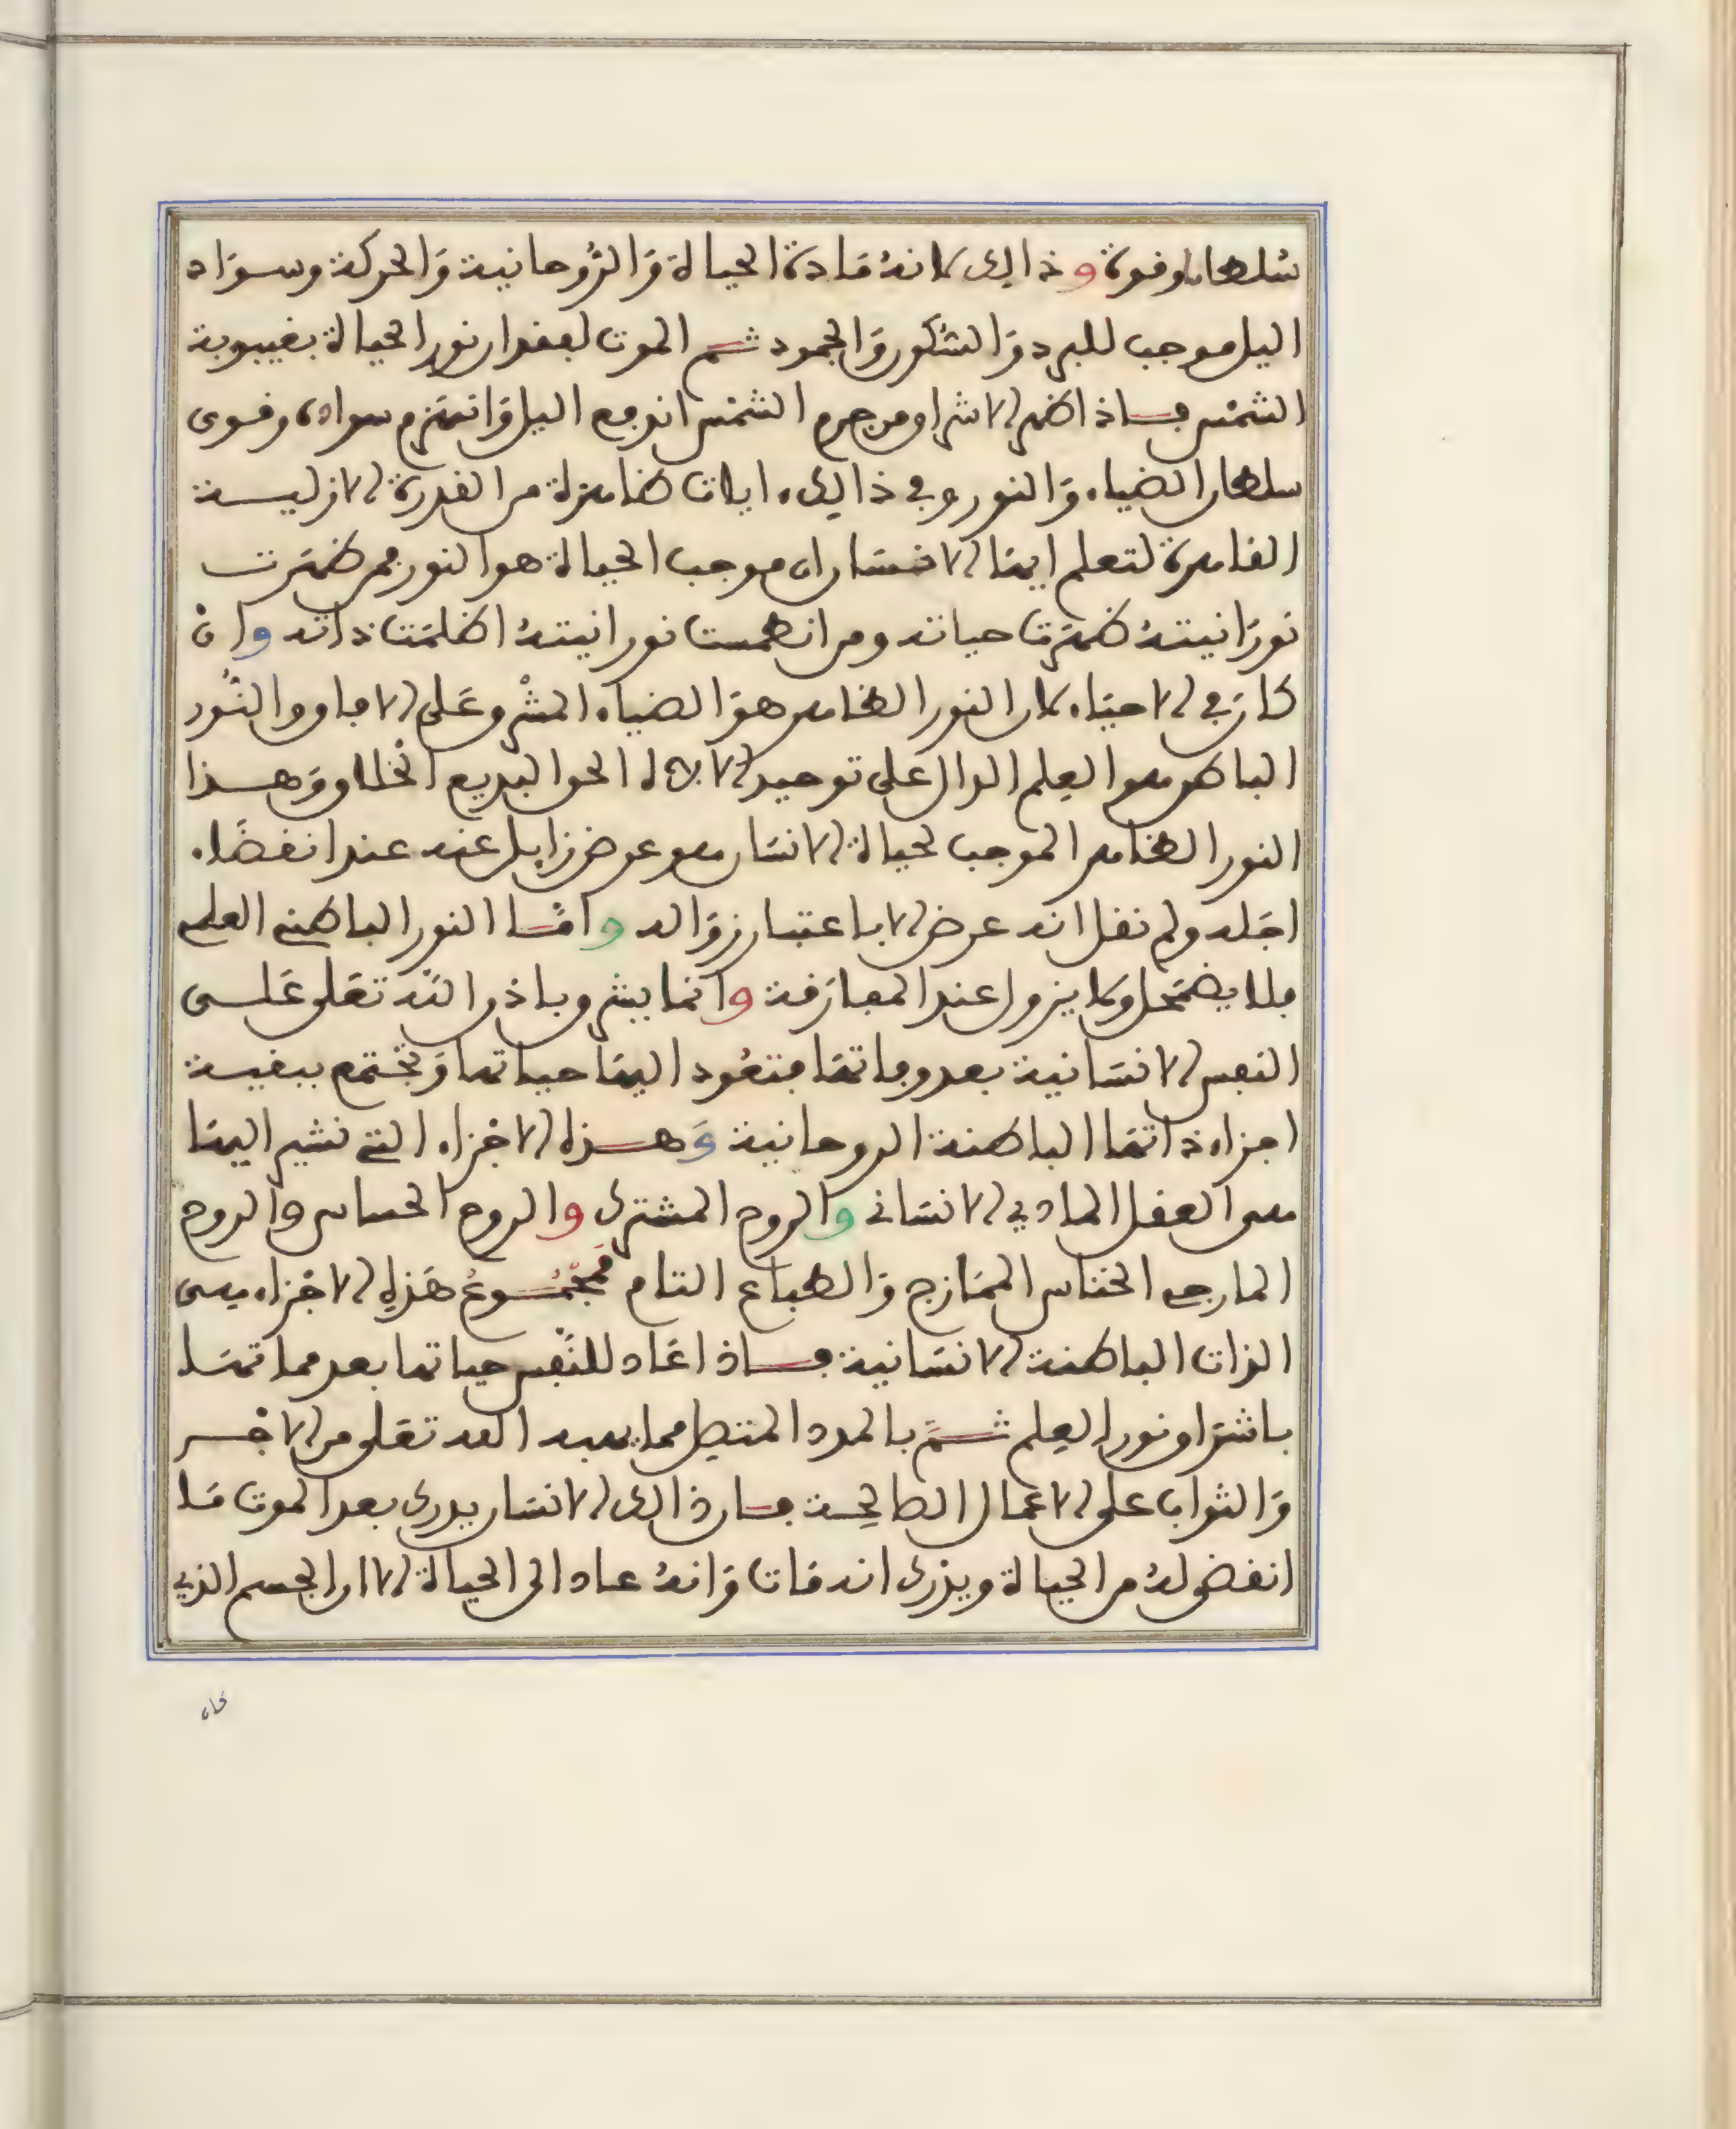 سلطانا وقوة وذالك لانه مادة الحياة والروحانية والحركة وسواد
اليل موجب للبرد والسكون والجمود ثم الموت لفقدان نور الحياة بغيبوبة
الشمس فاذا ظهر الاشراق من جرم الشمس اندفع اليل وانهزم سواده وقوى
سلطان الضياء والنور وفي ذالك ايات ظاهرة من القدرة الازلية
القاهرة لتعلم ايها الانسان ان موجب الحياة هو النور فمن ظهرت
نورانيته ظهرت حياته ومن انطمست نورانيته اظلمت ذاته وان
كان في الاحياء لان النور الظاهر هو الضياء المشرق على الافاق والنور
الباطن هو العلم الدال على توحيد الاله الحق البديع الخلاق وهذا
النور الظاهر الموجب لحياة الانسان هو عرض زايل عنه عند انقضاء
اجله ولم نقل انه عرض الا باعتبار زواله واما النور الباطني العلم
فلا يضمحل ولا يزول عند المفارقة وانما يشرق باذن الله تعلى على
النفس الانسانية بعد وفاتها فتعود اليها حياتها وتجتمع ببقية
اجزاء ذاتها الباطنة الروحانية وهذه الاجزاء التي نشير اليها
هي العقل المادي الانساني والروح المشترك والروح الحساس والروح
المارجي الخناس الممازج والطباع التام فمجموع هذه الاجزاء هي
الذات الباطنة الانسانية فاذا عاد للنفس حياتها بعد مماتها
باشراق نور العلم ثم بالمدد المتصل مما يهبه الله تعلى من الاجر
والثواب على الاعمال الصالحة فان ذالك الانسان يدرى بعد الموت ما
انقضى له من الحياة ويدرى انه مات وانه عاد الى الحياة الا ان الجسم الذي